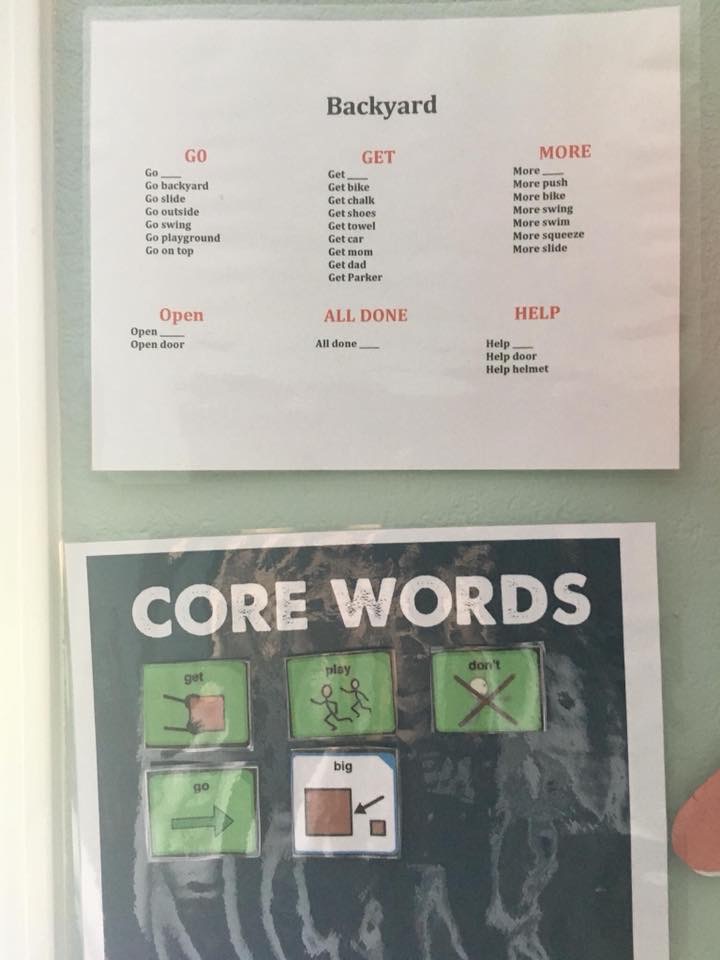 Backyard
GO
Go ____
Go backyard
Go slide
Go outside
Go swing
Go playground
Go on top
GET
Get ____
Get bike
Get chalk
Get shoes
Get towel
Get car
Get mom
Get dad
Get Parker
MORE
More ____
More push
More bike
More swing
More swim
More squeeze
More slide
Open
Open ____
Open door
ALL DONE
All done ____
HELP
Help ____
Help door
Help helmet
CORE WORDS
get
play
don't
go
big